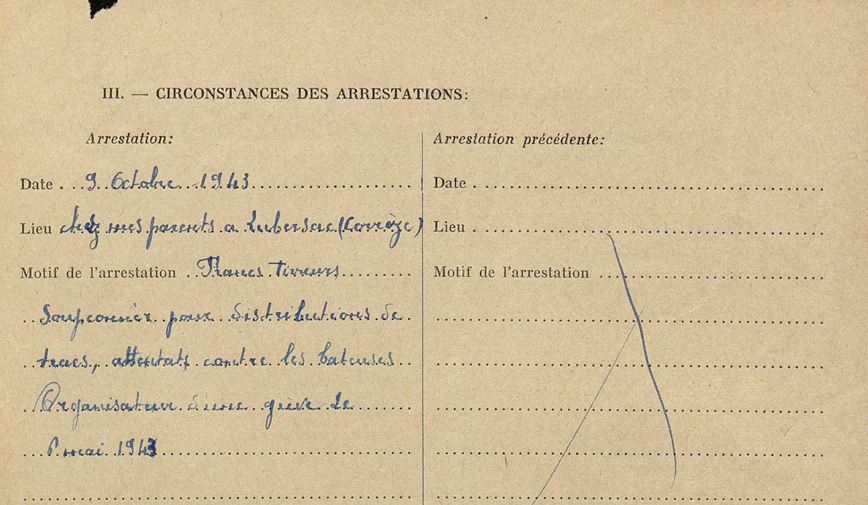 III. — CIRCONSTANCES DES ARRESTATIONS:
Arrestation:
Date 9 Octobre 1943
Lieu chez mes parents a Lubersac (Corrèze)
Motif de l'arrestation Francs tireurs
Soupconnér pour distributions de
tracs, attentats contre les bateuses
Organisateur d'une grève le
mai 1943
Arrestation précédente:
Date
Lieu
Motif de l'arrestation